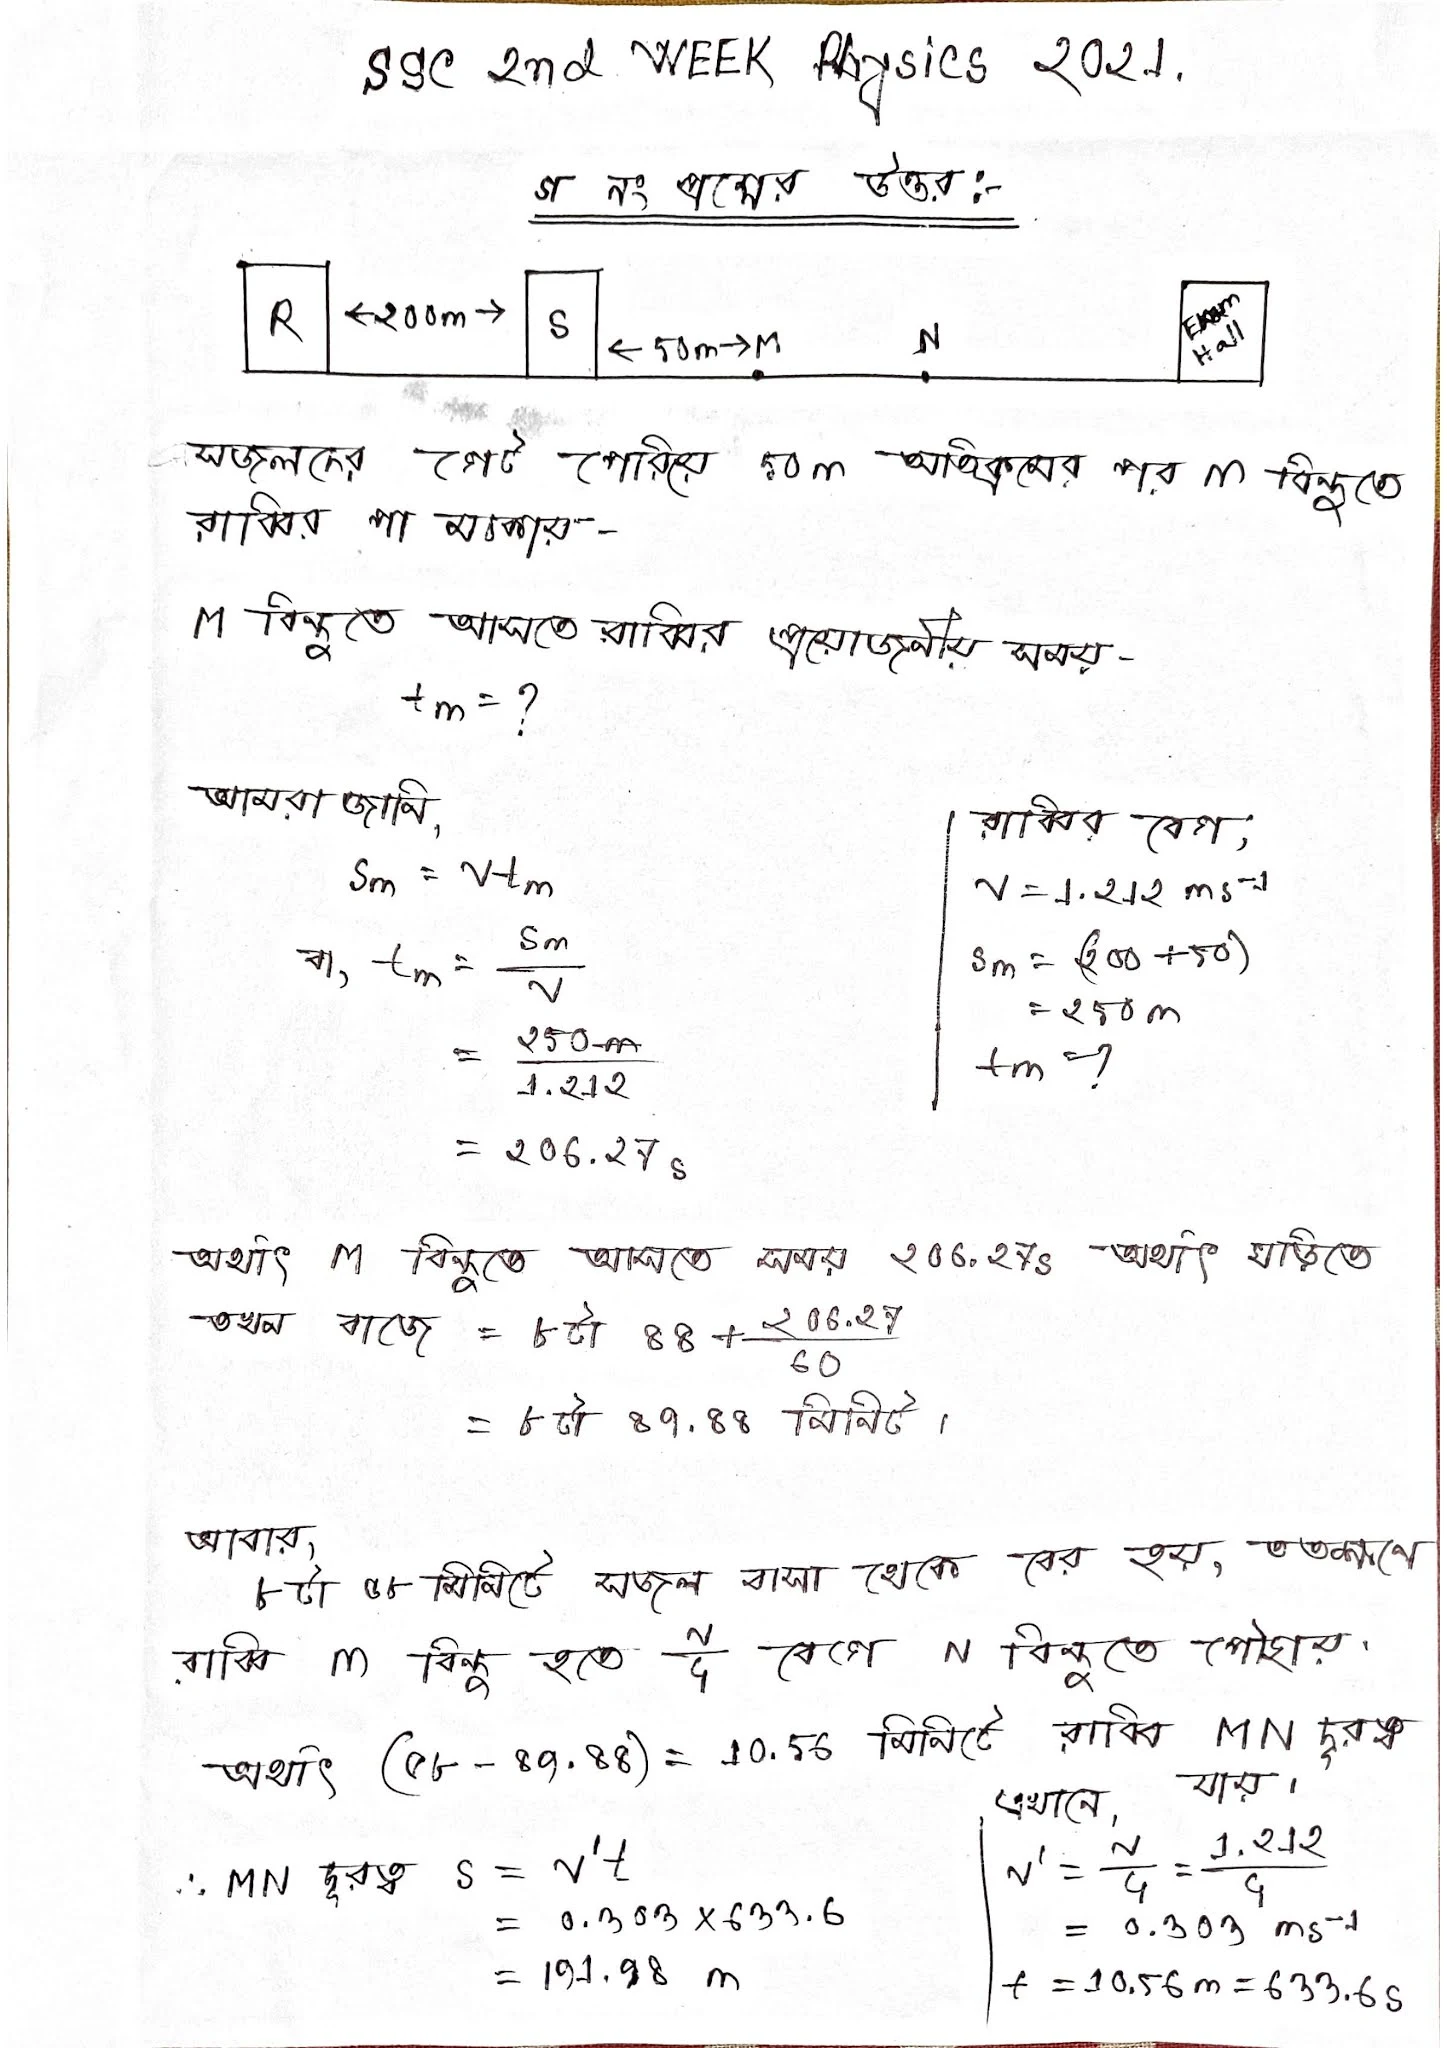 SSC 2nd WEEK Physics 2021.
গ নং প্রশ্নের উত্তর:-
R ←200m→ S ←50m→ M N Exam Hall
সজলদের গেট পেরিয়ে 50m অতিক্রমের পর M বিন্দুতে
রাব্বির পা মচকায়-
M বিন্দুতে আসতে রাব্বির প্রয়োজনীয় সময়-
tm = ?
আমরা জানি,
Sm = Vtm
বা, tm = Sm/V
= 250m/1.212
= 206.27s
রাব্বির বেগ,
V = 1.212 ms⁻¹
Sm = (200+50)
= 250m
tm = ?
অর্থাৎ M বিন্দুতে আসতে সময় 206.27s অর্থাৎ ঘড়িতে
তখন বাজে = ৮টা ৪৪ + 206.27/60
= ৮টা ৪৭.৪৪ মিনিট।
আবার,
৮টা ৫৮ মিনিটে সজল বাসা থেকে বের হয়, ততক্ষণে
রাব্বি M বিন্দু হতে V/4 বেগে N বিন্দুতে পৌছায়।
অর্থাৎ (৫৮ - ৪৭.৪৪) = 10.56 মিনিটে রাব্বি MN দূরত্ব
যায়।
∴ MN দূরত্ব S = V't
= 0.303 × 633.6
= 191.98 m
এখানে,
V' = V/4 = 1.212/4
= 0.303 ms⁻¹
t = 10.56m = 633.6s